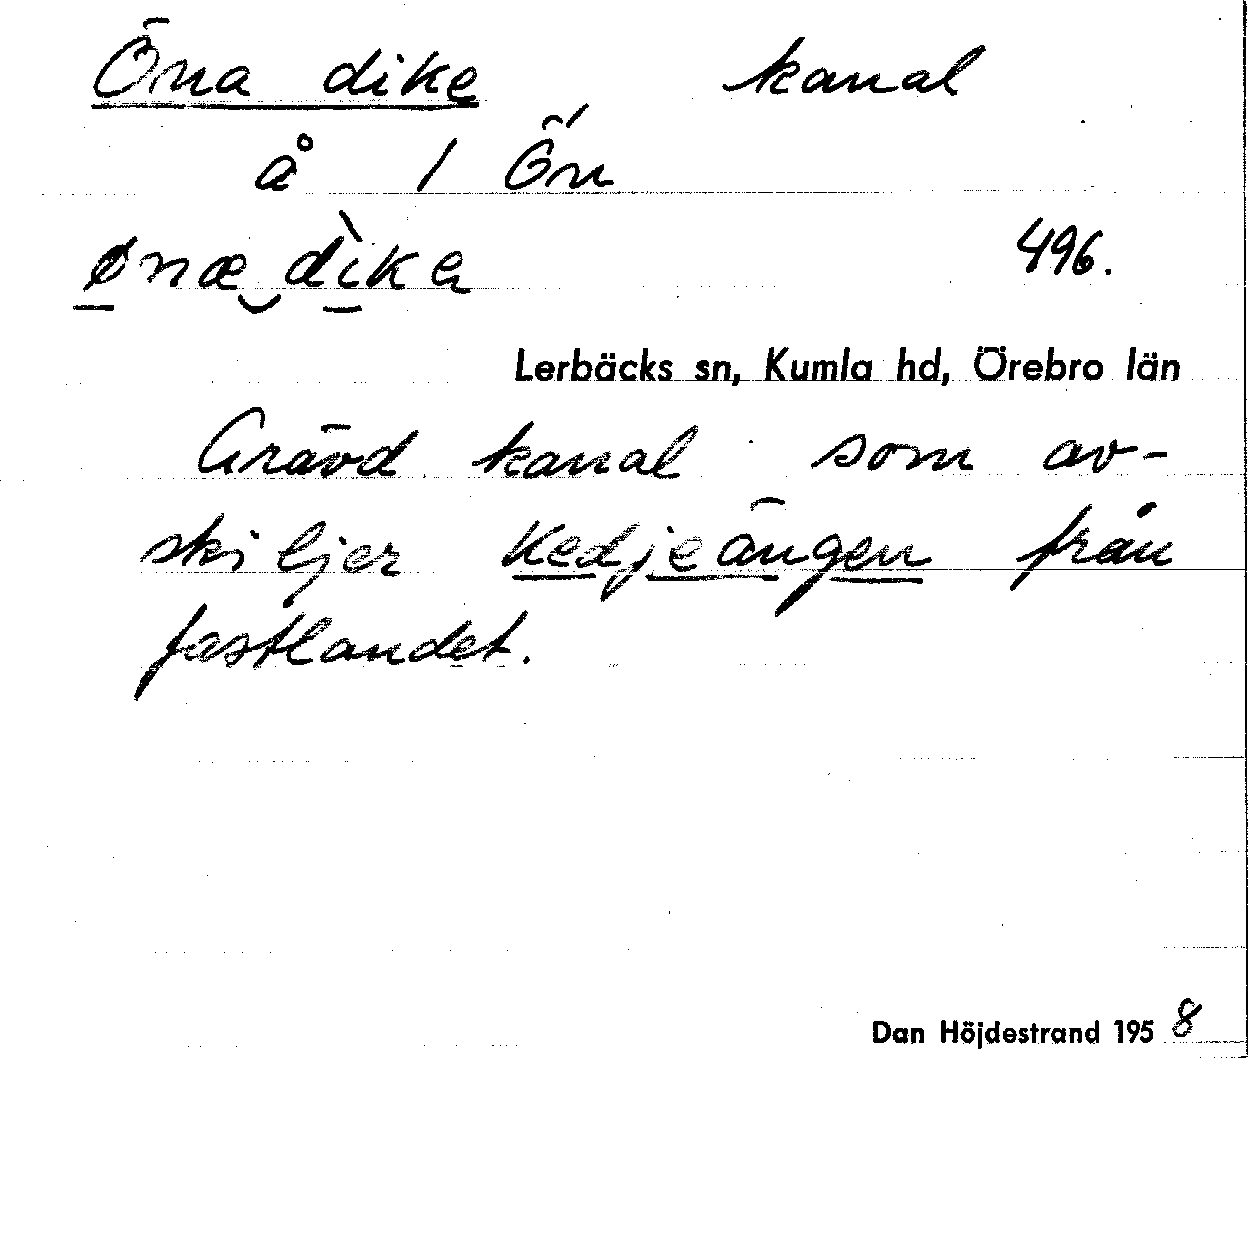 Öna dike kanal
å 1 Ön
ønæ dìka
496.
Lerbäcks sn, Kumla hd, Örebro län
Grävd kanal som av-
skiljer Kedjeängen från
fastlandet.
Dan Höjdestrand 1958